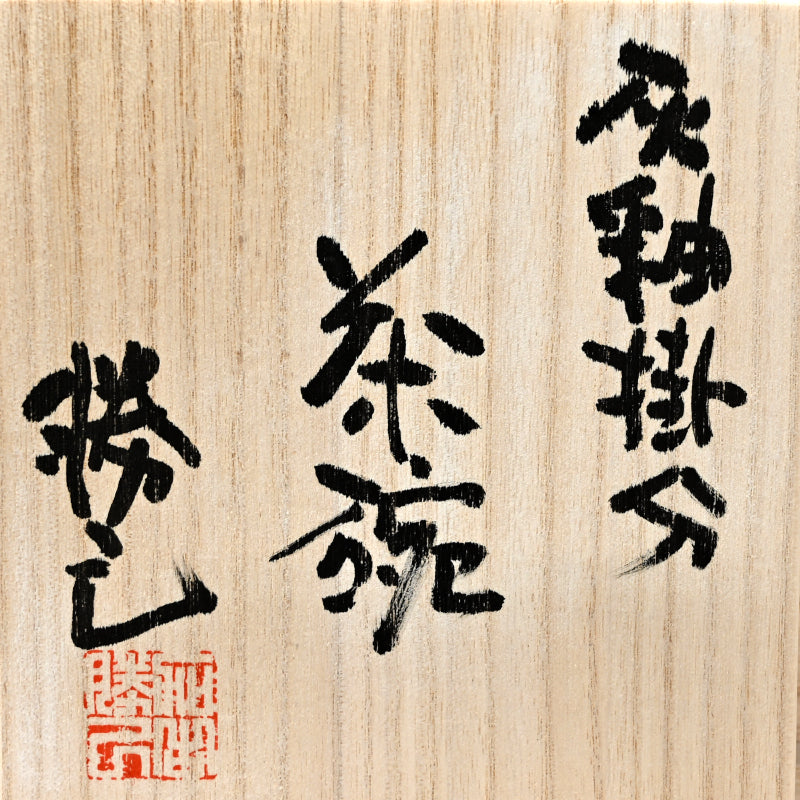 灰釉掛分
茶碗
勝